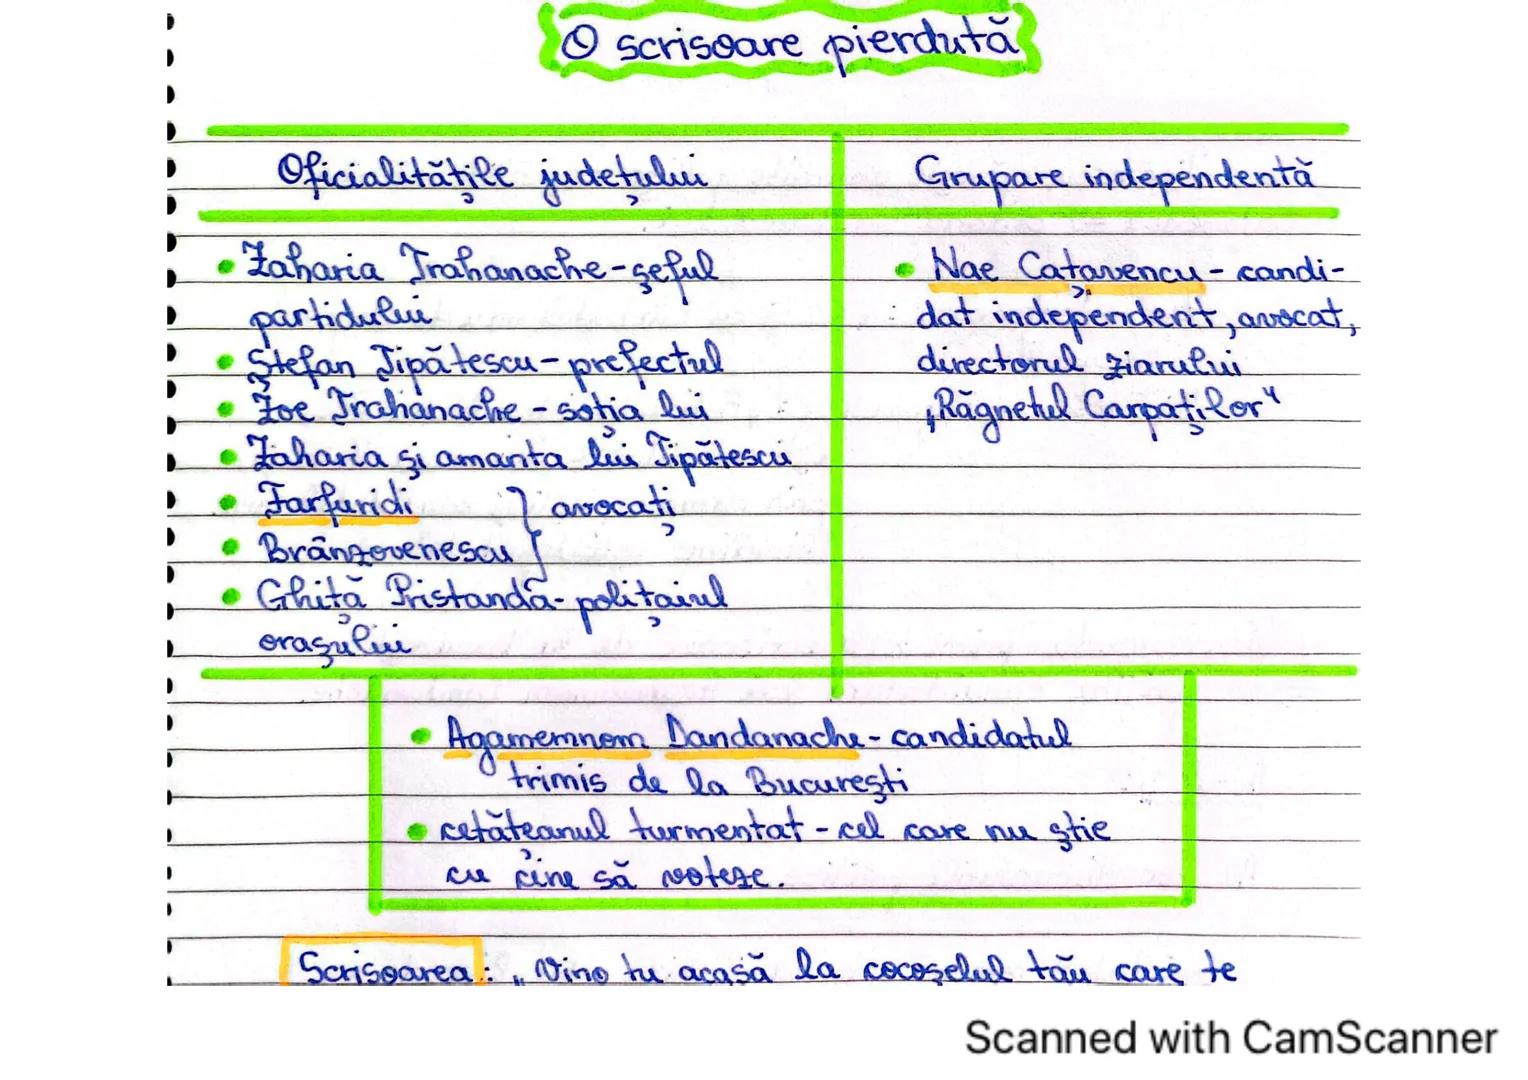 O scrisoare pierdută
Oficialitățile județului
Grupare independentă
• Zaharia Trahanache - șeful
partidului
• Ștefan Tipătescu - prefectul
• Zoe Trahanache - soția lui
• Zaharia și amanta lui Tipătescu
• Farfuridi } avocați
• Brânzovenescu
• Ghiță Pristandă - polițaiul
orașului
• Nae Cațavencu - candi-
dat independent, avocat,
directorul ziarului
„Răgnetul Carpaților"
• Agamemnom Dandanache - candidatul
trimis de la București
• cetățeanul turmentat - cel care nu știe
cu cine să voteze.
Scrisoarea: „Vino tu acasă la cocoșelul tău care te
Scanned with CamScanner